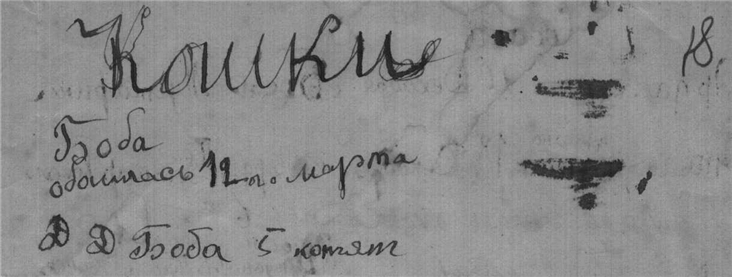 Кошки
18
Боба
обошлась 12 го. марта
Д Д Боба 5 котят